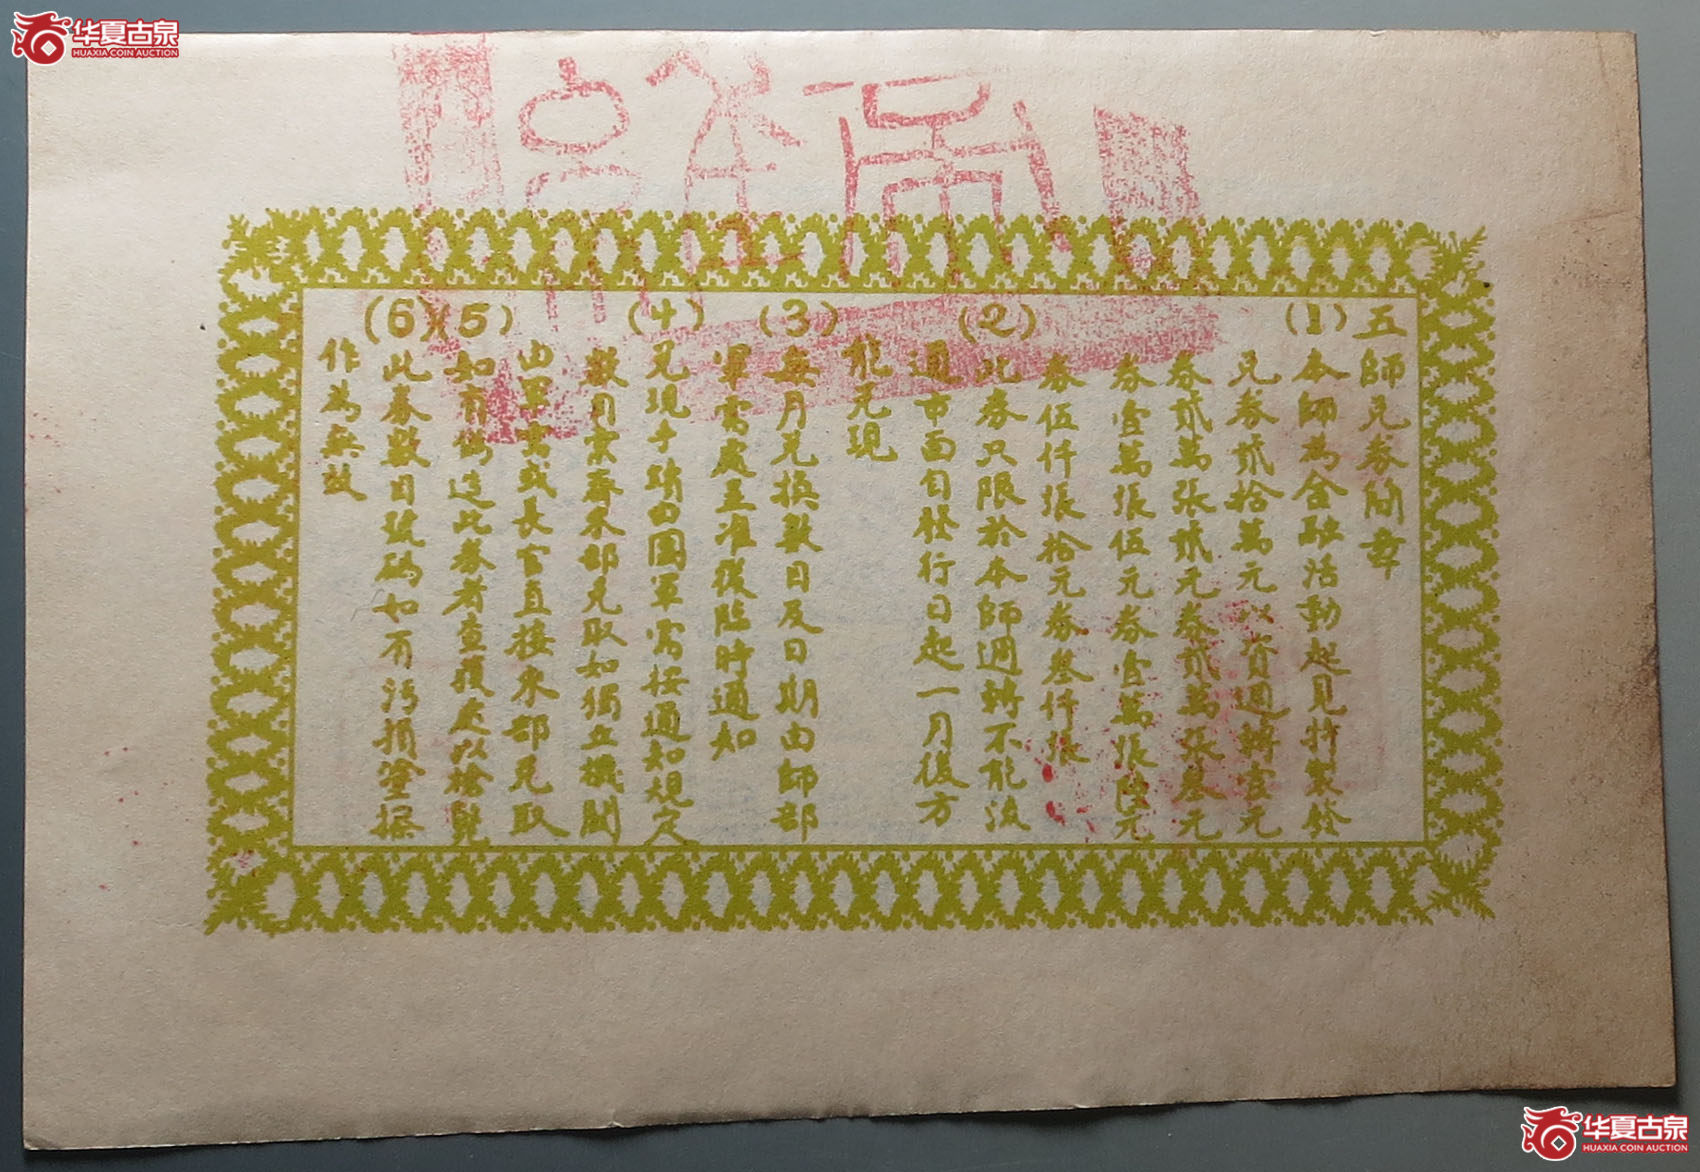 华夏古泉
HUAXIA COIN AUCTION
五師兑券簡章
(1)
本師為金融活動起見特製發
兑券貳拾萬元以資週轉壹元
券貳萬張貳元券貳萬張叁元
券壹萬張伍元券壹萬張陸元
券伍仟張拾元券叁仟張
(2)
此券只限於本師週轉不能流
通市面自發行日起一月後方
能兑現
(3)
每月兑換數目及日期由師部
軍需處呈准後臨時通知
(4)
兑現手續由團軍需按通知規定
數目彙齊來部兑取如獨立機關
由軍需或長官直接來部兑取
(5)
如有偽造此券者查獲處以槍斃
(6)
此券數目號碼如有污損塗改
作為無效
华夏古泉
HUAXIA COIN AUCTION